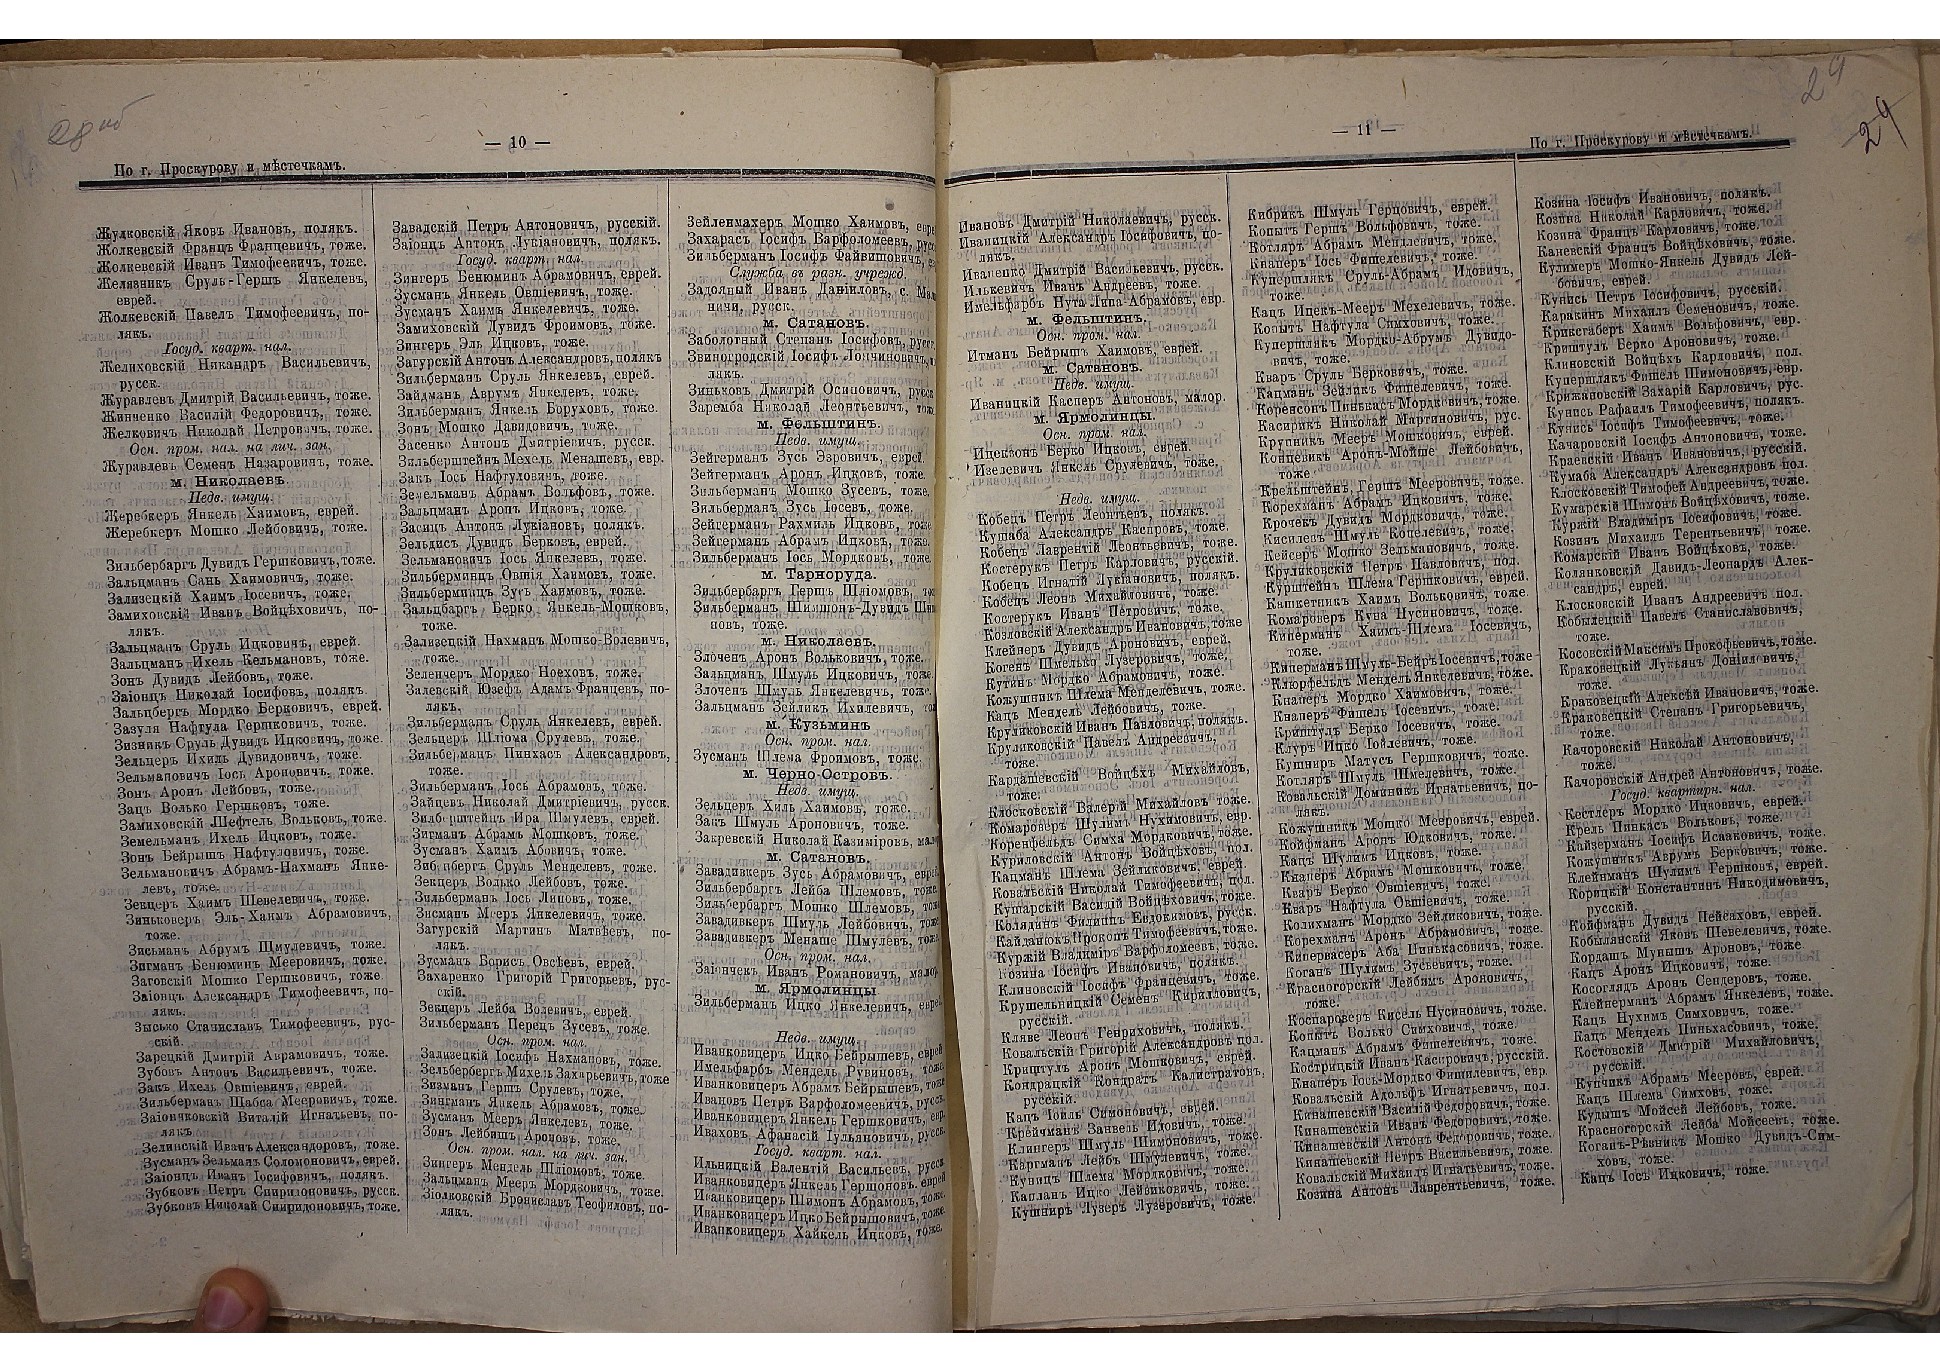 — 10 —
По г. Проскурову и мѣстечкамъ.
Жудковскій Яковъ Ивановъ, полякъ.
Жолкевскій Францъ Францевичъ, тоже.
Жолкевскій Иванъ Тимофеевичъ, тоже.
Желязникъ Сруль-Гершъ Янкелевъ,
еврей.
Жолкевскій Павелъ Тимофеевичъ, по-
лякъ.
Госуд. кварт. нал.
Желиховскій Никандръ Васильевичъ,
русск.
Журавлевъ Дмитрій Васильевичъ, тоже.
Жинченко Василій Федоровичъ, тоже.
Желковичъ Николай Петровичъ, тоже.
Осн. пром. нал. на лич. зан.
Журавлевъ Семенъ Назаровичъ, тоже.
м. Николаевъ.
Недв. имущ.
Жеребкеръ Янкель Хаимовъ, еврей.
Жеребкеръ Мошко Лейбовичъ, тоже.
Зильбербаргъ Дувидъ Гершковичъ, тоже.
Зальцманъ Сань Хаимовичъ, тоже.
Зализецкій Хаимъ Іосевичъ, тоже.
Замиховскій Иванъ Войцѣховичъ, по-
лякъ.
Зальцманъ Сруль Ицковичъ, еврей.
Зальцманъ Ихель Кельмановъ, тоже.
Зонъ Дувидъ Лейбовъ, тоже.
Заіонцъ Николай Іосифовъ, полякъ.
Зальцбергъ Мордко Берковичъ, еврей.
Зазуля Нафтула Гершковичъ, тоже.
Зизникъ Сруль Дувидъ Ицковичъ, тоже.
Зельцеръ Ихиль Дувидовичъ, тоже.
Зельмановичъ Іось Ароновичъ, тоже.
Зонъ Аронъ Лейбовъ, тоже.
Зацъ Волько Гершковъ, тоже.
Замиховскій Шефтель Вольковъ, тоже.
Земельманъ Ихель Ицковъ, тоже.
Зонъ Бейрышъ Нафтуловичъ, тоже.
Зельмановичъ Абрамъ-Нахманъ Янке-
левъ, тоже.
Зекцеръ Хаимъ Шевелевичъ, тоже.
Зиньковеръ Эль-Хаимъ Абрамовичъ,
тоже.
Зисьманъ Абрумъ Шмулевичъ, тоже.
Зигманъ Бенюминъ Мееровичъ, тоже.
Заговскій Мошко Гершковичъ, тоже
Заіонцъ Александръ Тимофеевичъ, по-
лякъ.
Зысько Станиславъ Тимофеевичъ, рус-
скій.
Зарецкій Дмитрій Аврамовичъ, тоже.
Зубовъ Антонъ Васильевичъ, тоже.
Закъ Ихель Овшіевичъ, еврей.
Зильберманъ Шабса Мееровичъ, тоже.
Заіончковскій Виталій Игнатьевъ, по-
лякъ
Зелинскій Иванъ Александровъ, тоже.
Зусманъ Зельманъ Соломоновичъ, еврей.
Заіонцъ Иванъ Іосифовичъ, полякъ.
Зубковъ Петръ Спиридоновичъ, русск.
Зубковъ Николай Спиридоновичъ, тоже.
Завадскій Петръ Антоновичъ, русскій.
Заіонцъ Антонъ Лукіановичъ, полякъ.
Госуд. кварт. нал.
Зингеръ Бенюминъ Абрамовичъ, еврей.
Зусманъ Янкель Овшіевичъ, тоже.
Зусманъ Хаимъ Янкелевичъ, тоже.
Замиховскій Дувидъ Фроимовъ, тоже.
Зингеръ Эль Ицковъ, тоже.
Загурскій Антонъ Александровъ, полякъ
Зильберманъ Сруль Янкелевъ, еврей.
Зайдманъ Аврумъ Янкелевъ, тоже.
Зильберманъ Янкель Боруховъ, тоже.
Зонъ Мошко Давидовичъ, тоже.
Засенко Антонъ Дмитріевичъ, русск.
Зильберштейнъ Мехель Менашевъ, евр.
Закъ Іось Нафтуловичъ, тоже.
Зечельманъ Абрамъ Вольфовъ, тоже.
Зальцманъ Аронъ Ицковъ, тоже.
Засицъ Антонъ Лукіановъ, полякъ.
Зельдисъ Дувидъ Берковъ, еврей.
Зельмановичъ Іось Янкелевъ, тоже.
Зильберминцъ Овшія Хаимовъ, тоже.
Зильберминцъ Зусь Хаимовъ, тоже.
Зальцбаргъ Берко Янкель-Мошковъ,
тоже.
Заливецкій Нахманъ Мошко-Волевичъ,
тоже.
Зеленчеръ Мордко Ноеховъ, тоже.
Залевскій Юзефъ Адамъ-Францевъ, по-
лякъ.
Зильберманъ Сруль Янкелевъ, еврей.
Зельцеръ Шліома Срулевъ, тоже.
Зильберманъ Пинхасъ Александровъ,
тоже.
Зильберманъ Іось Абрамовъ, тоже.
Зайцевъ Николай Дмитріевичъ, русск.
Зилберштейнъ Ира Шмулевъ, еврей.
Зигманъ Абрамъ Мошковъ, тоже.
Зусманъ Хаимъ Абовичъ, тоже.
Зиб цбергъ Сруль Менделевъ, тоже.
Зекцеръ Волько Лейбовъ, тоже.
Зильберманъ Іось Липовъ, тоже.
Зисманъ Мееръ Янкелевичъ, тоже.
Загурскій Мартинъ Матвѣевъ, по-
лякъ.
Зусманъ Борисъ Овсѣевъ, еврей,
Захаренко Григорій Григорьевъ, рус-
скій.
Зекцеръ Лейба Волевичъ, еврей
Зильберманъ Перецъ Зусевъ, тоже.
Осн. пром. нал.
Зализецкій Іосифъ Нахмановъ, тоже.
Зельбербергъ Михель Захарьевичъ, тоже
Зизманъ Гершъ Срулевъ, тоже.
Зингманъ Янкель Абрамовъ, тоже.
Зусманъ Мееръ Янкелевъ, тоже.
Зонъ Лейбишъ Ароновъ, тоже.
Осн. пром. нал. на лич. зан.
Зингеръ Мендель Шліомовъ, тоже.
Зальцманъ Мееръ Мордковичъ, тоже.
Зіолковскій Брониславъ Теофиловъ, по-
лякъ.
Зейленмахеръ Мошко Хаимовъ,
Захарасъ Іосифъ Варфоломеевъ,
Зильберманъ Іосифъ Файвишовичъ,
Служба въ разн. учрежд.
Задояный Иванъ Даниловъ, с.
ничи, русск.
м. Сатановъ.
Заболотный Степанъ Іосифовъ,
Звиногродскій Іосифъ Лончиновичъ,
лякъ.
Зиньковъ Дмитрій Осиповичъ,
Заремба Николай Леонтьевичъ,
м. Фельштинъ.
Недв. имущ.
Зейгерманъ Зусь Эзровичъ, еврей.
Зейгерманъ Аронъ Ицковъ, тоже.
Зильберманъ Мошко Зусевъ, тоже.
Зильберманъ Зусь Іосевъ, тоже.
Зейгерманъ Рахмиль Ицковъ, тоже
Зейгерманъ Абрамъ Ицковъ, тоже.
Зильберманъ Іось Мордковъ, тоже.
м. Тарноруда.
Зильбербаргъ Гершъ Шліомовъ,
Зильберманъ Шимшонъ-Дувидъ
новъ, тоже.
м. Николаевъ.
Злоченъ Аронъ Волькoвичъ, тоже.
Зальцманъ Шмуль Ицковичъ, тоже.
Злоченъ Шмуль Янкелевичъ, тоже.
Зальцманъ Зейликъ Ихилевичъ,
м. Кузьминъ
Осн. пром. нал.
Зусманъ Шлема Фроимовъ, тоже.
м. Черно-Островъ.
Недв. имущ.
Зельцеръ Хиль Хаимовъ, тоже.
Закъ Шмуль Ароновичъ, тоже.
Закревскій Николай Казиміровъ,
м. Сатановъ.
Завадивкеръ Зусь Абрамовичъ, еврей
Зильбербаргъ Лейба Шлемовъ, тоже
Зильбербаргъ Мошко Шлемовъ,
Завадивкеръ Шмуль Лейбовичъ,
Завадивкеръ Менаше Шмулевъ,
Осн. пром. нал.
Заіончекъ Иванъ Романовичъ,
м. Ярмолинцы
Зильберманъ Ицко Янкелевичъ,
Недв. имущ.
Иванковицеръ Ицко Бейрышевъ, еврей
Имельфарбъ Мендель Рувиновъ, тоже.
Иванковицеръ Абрамъ Бейрышевъ, тоже
Ивановъ Петръ Варфоломеевичъ, русск.
Иванковицеръ Янкель Гершковичъ, евр.
Иваховъ Афанасій Іульяновичъ, русск.
Госуд. кварт. нал.
Ильницкій Валентій Васильевъ, русск
Иванковицеръ Янкель Гершоновъ, еврей
Иванковицеръ Шимонъ Абрамовъ, тоже.
Иванковицеръ Ицко Бейрышовичъ, тоже.
Иванковицеръ Хайкель Ицковъ, тоже.
— 11 —
По г. Проскурову и мѣстечкамъ.
24
29
Ивановъ Дмитрій Николаевичъ, русск.
Иваницкій Александръ Іосифовичъ, по-
лякъ.
Иваненко Дмитрій Васильевичъ, русск.
Илькевичъ Иванъ Андреевъ, тоже.
Имельфарбъ Нута Липа-Абрамовъ, евр.
м. Фельштинъ.
Осн. пром. нал.
Итманъ Бейрышъ Хаимовъ, еврей.
м. Сатановъ.
Недв. имущ.
Иваницкій Касперъ Антоновъ, малор.
м. Ярмолинцы.
Осн. пром. нал.
Ицексонъ Берко Ицковъ, еврей.
Изелевичъ Янкель Срулевичъ, тоже.
Недв. имущ.
Кобецъ Петръ Леонтьевъ, полякъ.
Кушаба Александръ Каспровъ, тоже.
Кобецъ Лаврентій Леонтьевичъ, тоже.
Костерукъ Петръ Карловичъ, русскій.
Кобецъ Игнатій Лукіановичъ, полякъ.
Кобецъ Леонъ Михайловичъ, тоже.
Костерукъ Иванъ Петровичъ, тоже.
Козловскій Александръ Ивановичъ, тоже
Клейнеръ Дувидъ Ароновичъ, еврей.
Когенъ Шмелько Лузеровичъ, тоже.
Кутинъ Мордко Абрамовичъ, тоже.
Кожушникъ Шлема Менделевичъ, тоже.
Кацъ Мендель Лейбовичъ, тоже.
Круликовскій Иванъ Павловичъ, полякъ.
Круликовскій Павелъ Андреевичъ,
тоже.
Кардашевскій Войцѣхъ Михайловъ,
тоже.
Клосковскій Валерій Михайловъ тоже.
Комароверъ Шулимъ Нухимовичъ, евр.
Коренфельдъ Симха Мордковичъ, тоже.
Куриловскій Антонъ Войцѣховъ, пол.
Кацманъ Шлема Зейликовичъ, еврей.
Ковальскій Николай Тимофеевичъ, пол.
Кушарскій Василій Войцѣховичъ, тоже.
Колядинъ Филиппъ Евдокимовъ, русск.
Кайданюкъ Прокопъ Тимофеевичъ, тоже.
Куржій Владиміръ Варфоломеевъ, тоже.
Козина Іосифъ Ивановичъ, полякъ.
Клиновскій Іосифъ Францевичъ, тоже.
Крушельницкій Семенъ Кирилловичъ,
русскій.
Кляве Леонъ Генриховичъ, полякъ.
Ковальскій Григорій Александровъ пол.
Криштулъ Аронъ Мошковичъ, еврей.
Кондрацкій Кондратъ Калистратовъ,
русскій.
Кацъ Іойль Симоновичъ, еврей.
Крейчманъ Занвель Идовичъ, тоже.
Клингеръ Шмуль Шимоновичъ, тоже.
Каргманъ Лейбъ Шрулевичъ, тоже.
Куницъ Шлема Мордковичъ, тоже.
Капланъ Ицко Лейвиковичъ, тоже.
Кушниръ Лузеръ Лузеровичъ, тоже.
Кибрикъ Шмуль Герцовичъ, еврей.
Копытъ Гершъ Вольфовичъ, тоже.
Котляръ Абрамъ Менделевичъ, тоже.
Кнаперъ Іось Фишелевичъ, тоже.
Купершлякъ Сруль-Абрамъ Идовичъ,
тоже.
Кацъ Ицекъ-Мееръ Мехелевичъ, тоже.
Копытъ Нафтула Симховичъ, тоже.
Купершлякъ Мордко-Абрумъ Дувидо-
вичъ, тоже.
Кваръ Сруль Берковичъ, тоже.
Кацманъ Зейликъ Фишелевичъ, тоже.
Коренсонъ Пинькасъ Мордковичъ, тоже.
Касирикъ Николай Мартиновичъ, рус.
Крупникъ Мееръ Мошковичъ, еврей.
Концевикъ Аронъ-Мойше Лейбовичъ,
тоже
Крельштейнъ Гершъ Мееровичъ, тоже.
Корехманъ Абрамъ Ицковичъ, тоже.
Крочекъ Дувидъ Мордковичъ, тоже.
Кисилевъ Шмуль Коцелевичъ, тоже.
Кейсеръ Мошко Зельмановичъ, тоже.
Круликовскій Петръ Павловичъ, пол.
Курштейнъ Шлема Гершковичъ, еврей.
Кашкетникъ Хаимъ Вольковичъ, тоже.
Комароверъ Куна Нусиновичъ, тоже.
Киперманъ Хаимъ-Шлема Іосевичъ,
тоже.
Киперманъ Шмуль-Бейръ Іосевичъ, тоже
Клюрфельдъ Мендель Янкелевичъ, тоже.
Кнаперъ Мордко Хаимовичъ, тоже.
Кнаперъ Фишель Іосевичъ, тоже.
Криштулъ Берко Іосевичъ, тоже.
Клуръ Ицко Іойлевичъ, тоже.
Кушниръ Матусъ Гершковичъ, тоже.
Котляръ Шмуль Шмелевичъ, тоже.
Ковальскій Доминикъ Игнатьевичъ, по-
лякъ.
Кожушникъ Мошко Мееровичъ, еврей.
Койфманъ Аронъ Юдковичъ, тоже.
Кацъ Шулимъ Ицковъ, тоже.
Кнаперъ Абрамъ Мошковичъ, тоже.
Кваръ Берко Овшіевичъ, тоже.
Кваръ Нафтула Овшіевичъ, тоже.
Колихманъ Мордко Зейликовичъ, тоже.
Корехманъ Аронъ Абрамовичъ, тоже.
Кипервасеръ Аба Пинькасовичъ, тоже.
Коганъ Шулимъ Зусьевичъ, тоже.
Красногорскій Лейбишъ Ароновичъ,
тоже.
Коспароверъ Кисель Нусиновичъ, тоже.
Копытъ Волько Симховичъ, тоже.
Кацманъ Абрамъ Фишелевичъ, тоже.
Кострицкій Иванъ Касировичъ, русскій.
Кнаперъ Іось-Мордко Фишилевичъ, евр.
Ковальскій Адольфъ Игнатьевичъ, пол.
Кинашевскій Василій Федоровичъ, тоже.
Кинашевскій Иванъ Федоровичъ, тоже.
Кинашевскій Антонъ Федоровичъ, тоже.
Кинашевскій Петръ Васильевичъ, тоже.
Ковальскій Михаилъ Игнатьевичъ, тоже.
Козина Антонъ Лаврентьевичъ, тоже.
Козина Іосифъ Ивановичъ, полякъ.
Козина Николай Карловичъ, тоже.
Козина Францъ Карловичъ, тоже.
Каневскій Францъ Войцѣховичъ, тоже.
Кулимеръ Мошко-Янкель Дувидъ Лей-
бовичъ, еврей.
Купись Петръ Іосифовичъ, русскій.
Каракинъ Михаилъ Семеновичъ, тоже.
Криксгаберъ Хаимъ Вольфовичъ, евр.
Криштулъ Берко Ароновичъ, тоже.
Клиновскій Войцѣхъ Карловичъ, пол.
Купершлякъ Фишель Шимоновичъ, евр.
Крижановскій Захарій Карловичъ, рус.
Купись Рафаилъ Тимофеевичъ, полякъ.
Купись Іосифъ Тимофеевичъ, тоже.
Качаровскій Іосифъ Антоновичъ, тоже.
Краевскій Иванъ Ивановичъ, русскій.
Кумаба Александръ Александровъ пол.
Клосковскій Тимофей Андреевичъ, тоже.
Кумарскій Шимонъ Войцѣховичъ, тоже.
Куржій Владиміръ Іосифовичъ, тоже.
Козинъ Михаилъ Терентьевичъ, тоже.
Комарскій Иванъ Войцѣховъ, тоже.
Колянковскій Давидъ-Леонардъ Алек-
сандръ, еврей.
Клосковскій Иванъ Андреевичъ пол.
Кобылецкій Павелъ Станиславовичъ,
тоже.
Косовскій Максимъ Прокофьевичъ, тоже.
Краковецкій Лукьянъ Доніиловичъ,
тоже.
Краковецкій Алексѣй Ивановичъ, тоже.
Краковецкій Степанъ Григорьевичъ,
тоже.
Качоровскій Николай Антоновичъ,
тоже.
Качоровскій Андрей Антоновичъ, тоже.
Госуд. квартирн. нал.
Кестлеръ Мордко Ицковичъ, еврей.
Крель Пинкасъ Вольковъ, тоже.
Кайзерманъ Іосифъ Исааковичъ, тоже.
Кожушникъ Аврумъ Берковичъ, тоже.
Клейнманъ Шулимъ Гершковъ, еврей.
Корицкій Константинъ Никодимовичъ,
русскій.
Койфманъ Дувидъ Пейсаховъ, еврей.
Кобылянскій Яковъ Шевелевичъ, тоже.
Кордашъ Мунышъ Ароновъ, тоже
Кацъ Аронъ Ицковичъ, тоже.
Косоглядъ Аронъ Сендеровъ, тоже.
Клейнерманъ Абрамъ Янкелевъ, тоже.
Кацъ Нухимъ Симховичъ, тоже.
Кацъ Мендель Пиньхасовичъ, тоже.
Костовскій Дмитрій Михайловичъ,
русскій.
Купчикъ Абрамъ Мееровъ, еврей.
Кацъ Шлема Симховъ, тоже.
Кудышъ Мойсей Лейбовъ, тоже.
Красногорскій Лейба Мойсеевъ, тоже.
Коганъ-Рѣзникъ Мошко Дувидъ-Сим-
ховъ, тоже.
Кацъ Іось Ицковичъ, тоже.